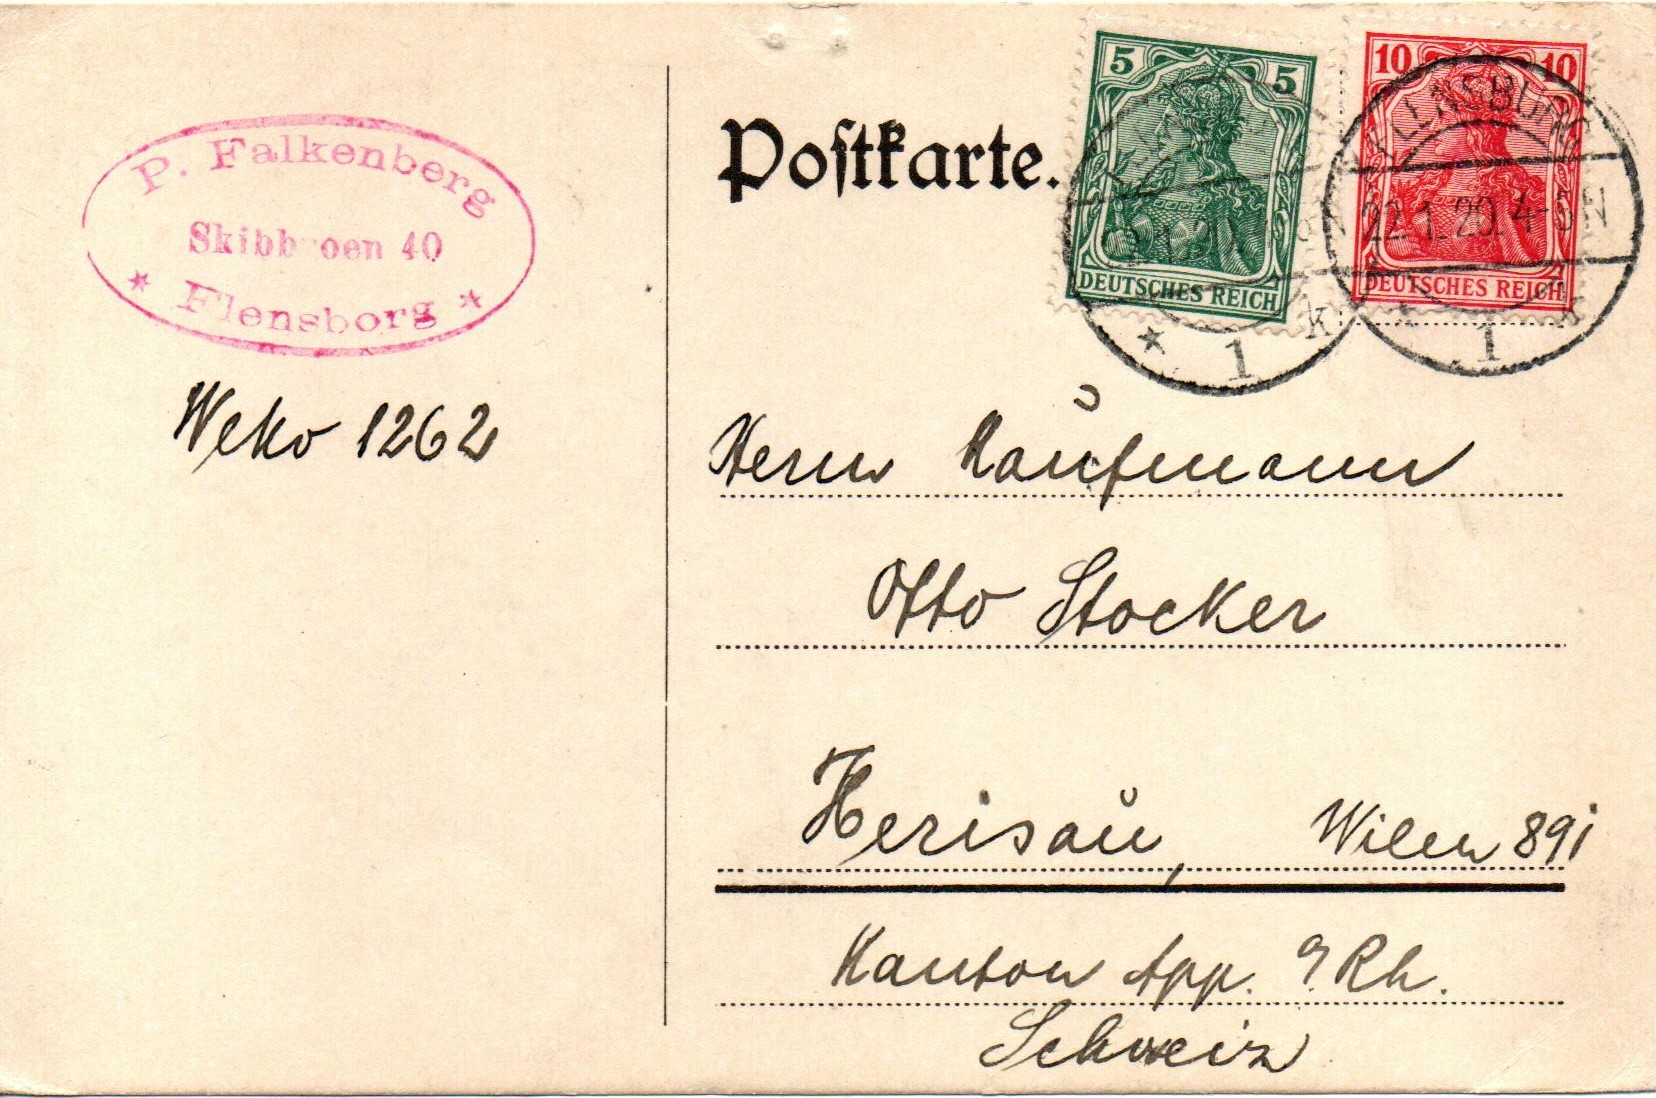 P. Falkenberg
Skibbroen 40
* Flensborg *
Weko 1262
Postkarte.
5 5
DEUTSCHES REICH
10 10
DEUTSCHES REICH
FLENSBURG
22.1.20. 4-5N
* 1 k
1
Herrn Kaufmann
Otto Stocker
Herisau, Wilen 891
Kanton App. A.Rh.
Schweiz